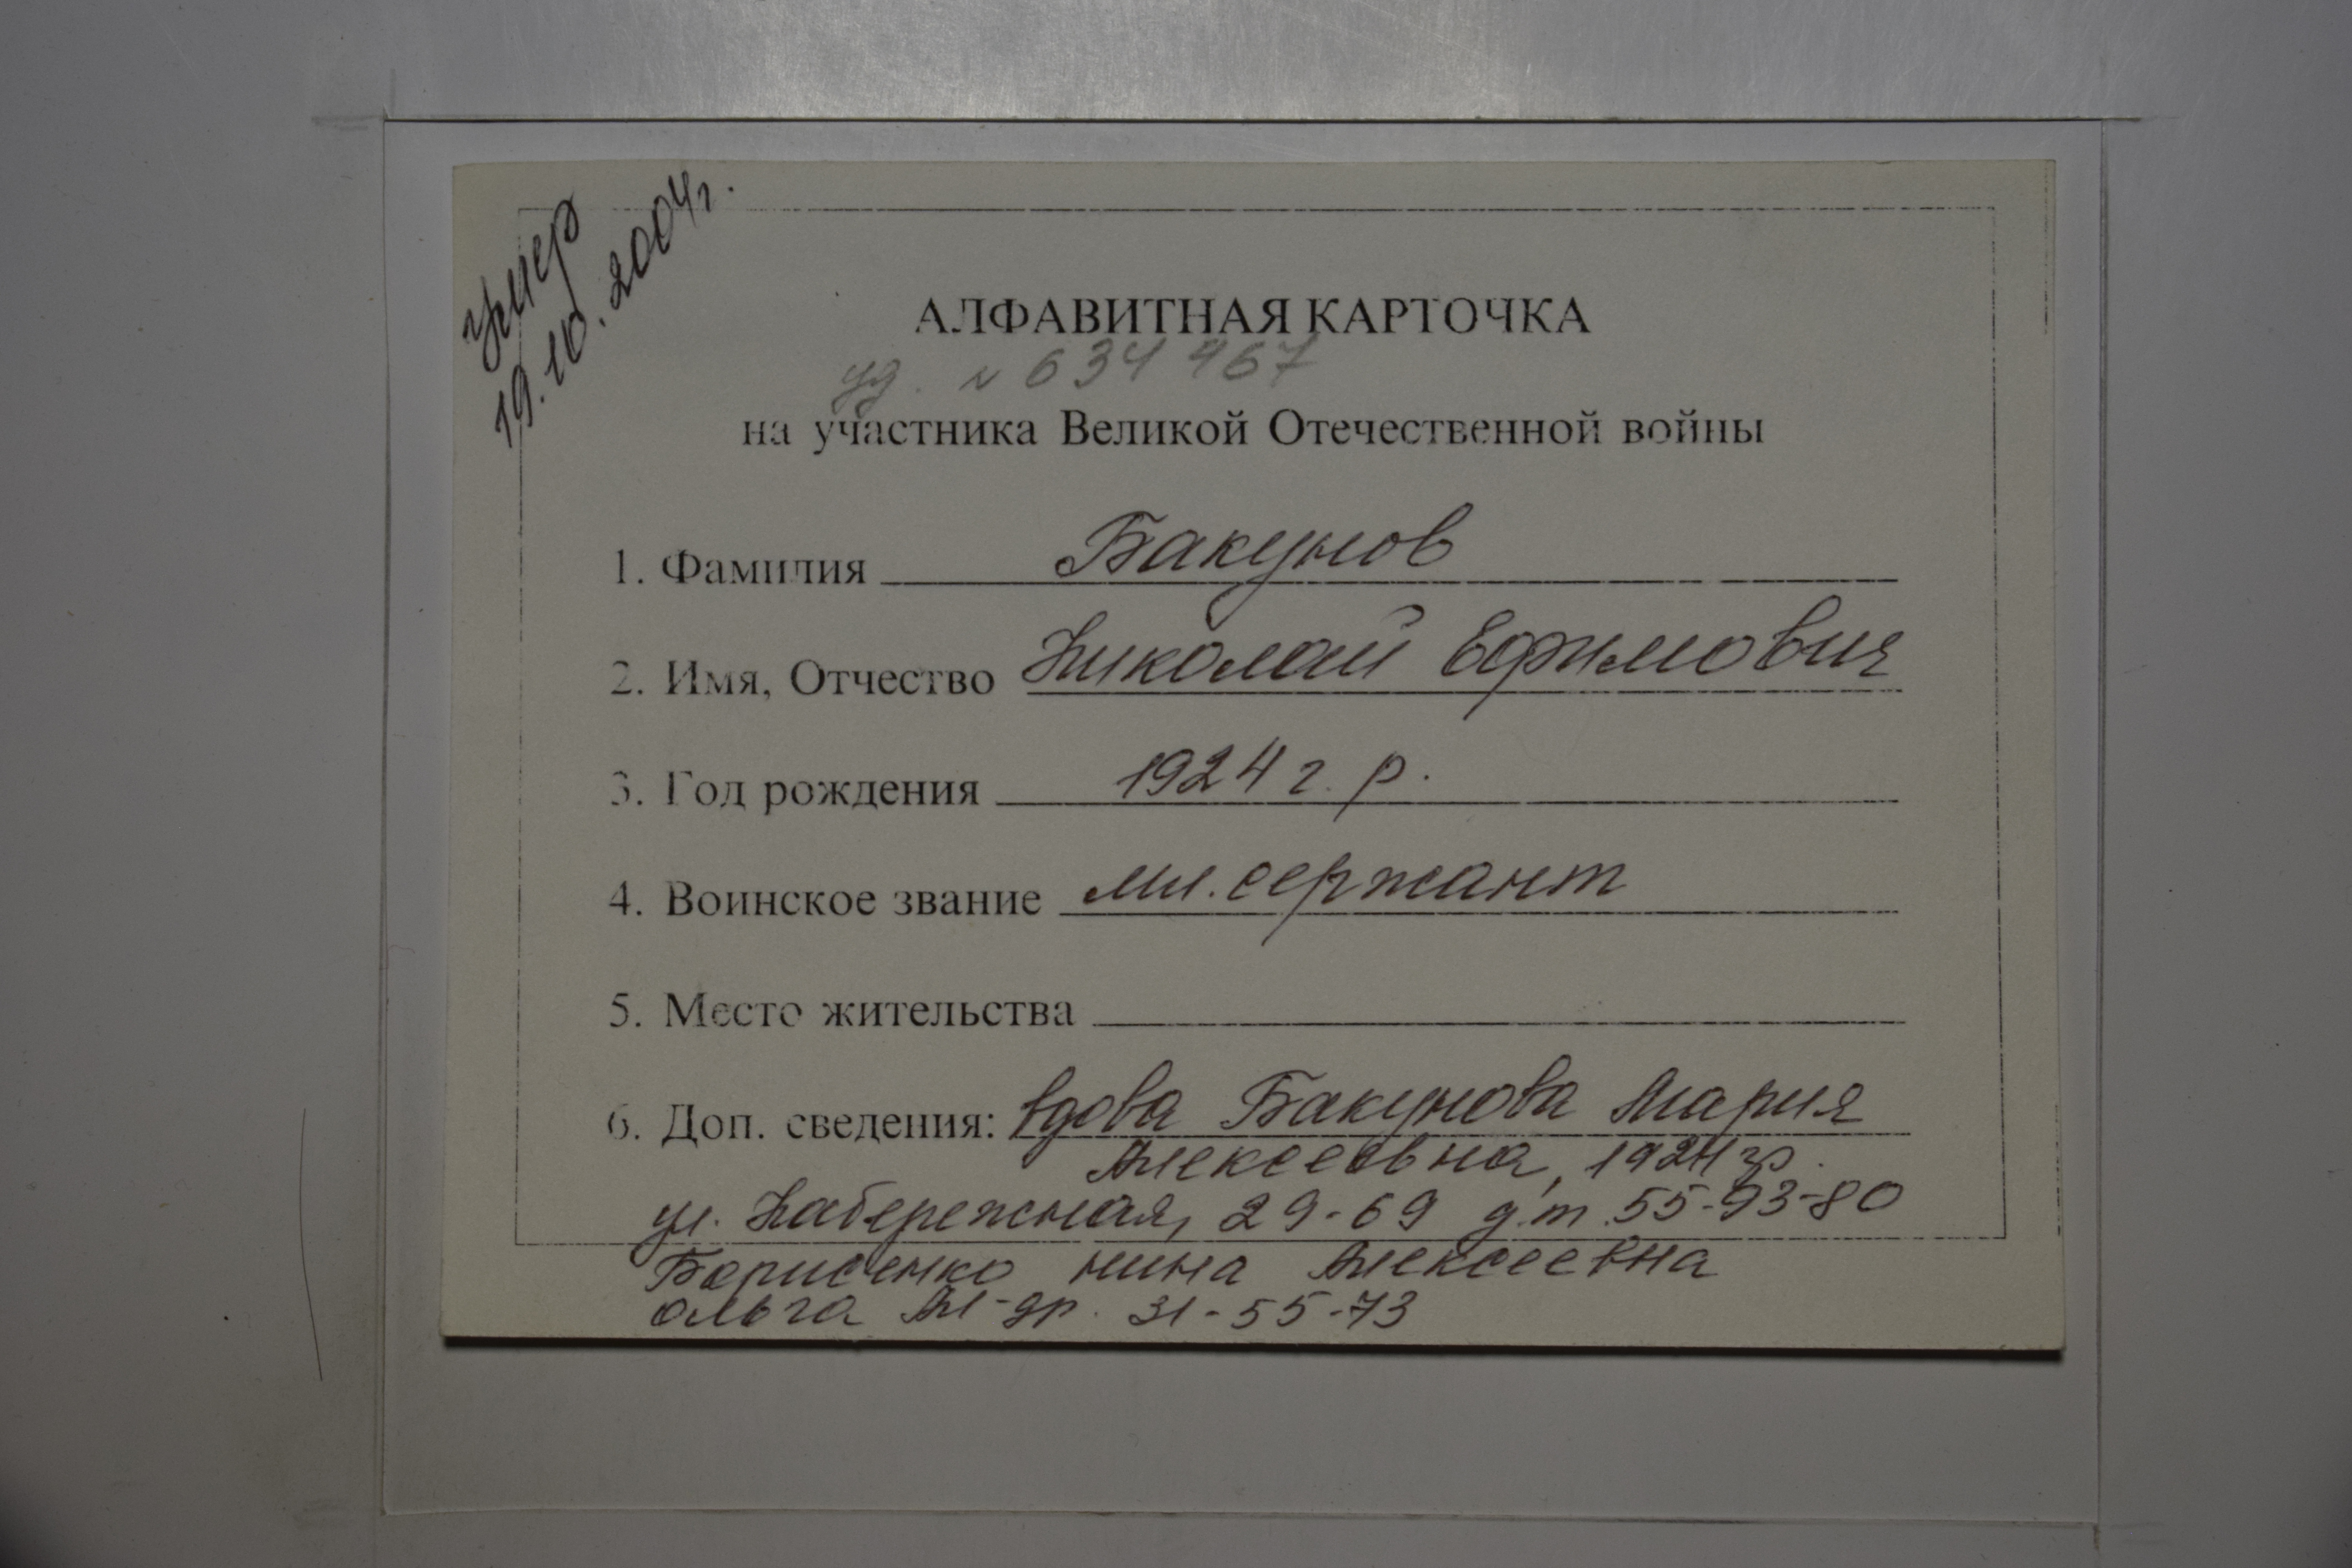 умер
19.10.2004г.
АЛФАВИТНАЯ КАРТОЧКА
уд. № 634467
на участника Великой Отечественной войны
1. Фамилия Бакунов
2. Имя, Отчество Николай Ефимович
3. Год рождения 1924 г. р.
4. Воинское звание мл. сержант
5. Место жительства
6. Доп. сведения: вдова Бакунова Мария
Алексеевна, 1924 гр.
ул. Набережная, 29-69 д.т. 55-93-80
Борисенко Нина Алексеевна
Ольга Ал-др. 31-55-73